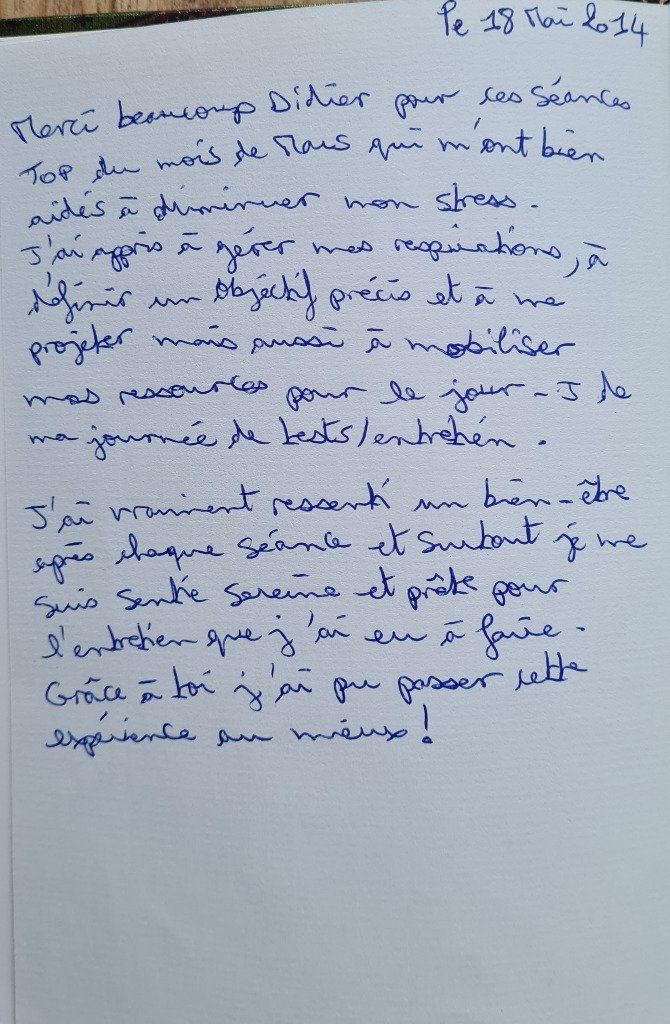 Le 18 Mai 2014
Merci beaucoup Didier pour ces séances
TOP du mois de Mars qui m'ont bien
aidés à diminuer mon stress.
J'ai appris à gérer mes respirations, à
définir un objectif précis et à me
projeter mais aussi à mobiliser
mes ressources pour le jour-J de
ma journée de tests/entretien.
J'ai vraiment ressenti un bien-être
après chaque séance et surtout je me
suis sentie sereine et prête pour
l'entretien que j'ai eu à faire.
Grâce à toi j'ai pu passer cette
expérience au mieux!